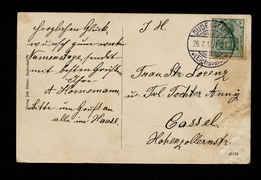 Herzlichen Glück-
wunsch zum werten
Namenstage, sendet
mit besten Grüßen
Ihre
A Hornemann.
Bitte um Gruß an
alle im Hause.
S. H.
Frau Str Lorenz
u Frl. Tochter Anny
Cassel,
Hohenzollernstr.
26.7.1
(Eichsfeld)